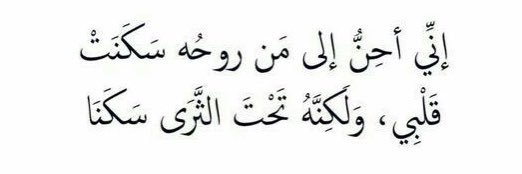 إنِّي أحِنُّ إلى مَن روحُه سَكَنَتْ
قَلْبِي، وَلَكِنَّهُ تَحْتَ الثَّرَى سَكَنَا